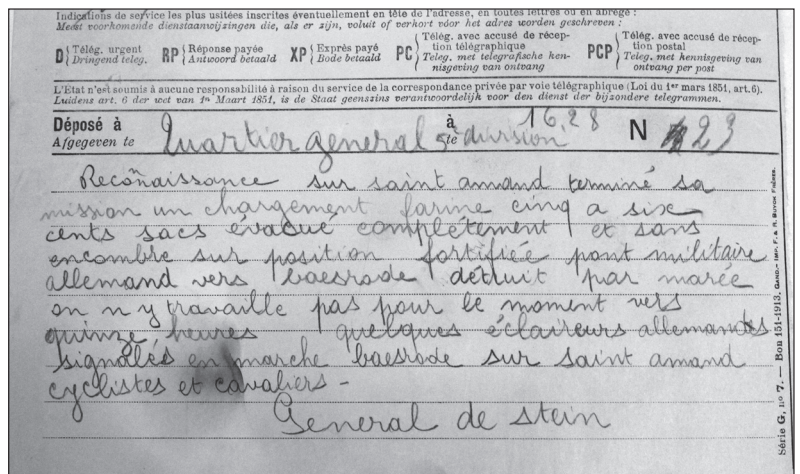 Indications de service les plus usitées inscrites éventuellement en tête de l'adresse, en toutes lettres ou en abrégé :
Meest voorkomende dienstaanwijzingen die, als er zijn, voluit of verkort vóór het adres worden geschreven :
D Télég. urgent Dringend teleg. RP Réponse payée Antwoord betaald XP Exprès payé Bode betaald PC Télég. avec accusé de réception télégraphique Teleg. met telegrafische kennisgeving van ontvang PCP Télég. avec accusé de réception postal Teleg. met kennisgeving van ontvang per post
L'État n'est soumis à aucune responsabilité à raison du service de la correspondance privée par voie télégraphique (Loi du 1er mars 1851, art. 6).
Luidens art. 6 der wet van 1n Maart 1851, is de Staat geenszins verantwoordelijk voor den dienst der bijzondere telegrammen.
Déposé à Quartier general 5e division à 16,28 N 23
Afgegeven te te
Reconaissance sur saint amand terminé sa
mission un chargement farine cinq a six
cents sacs évacué complétement et sans
encombre sur position fortifiée pont militaire
allemand vers baesrode détruit par marée
on n y travaille pas pour le moment vers
quinze heures quelques éclaireurs allemands
signalés en marche baesrode sur saint amand
cyclistes et cavaliers -
General de stein
Série G, no 7. — Bon 151-1913. GAND.- IMP. F. & R. BUYCK FRÈRES.